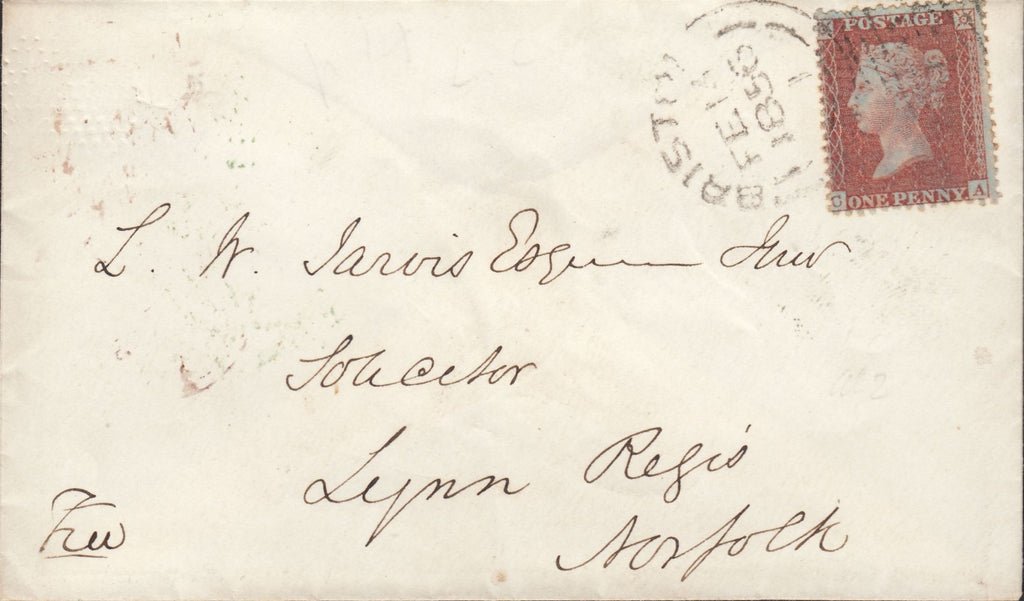 POSTAGE
C ONE PENNY A
BRISTOL
FE 14
1856
L. W. Jarvis Esq Junr
Solicitor
Lynn Regis
Norfolk
Free